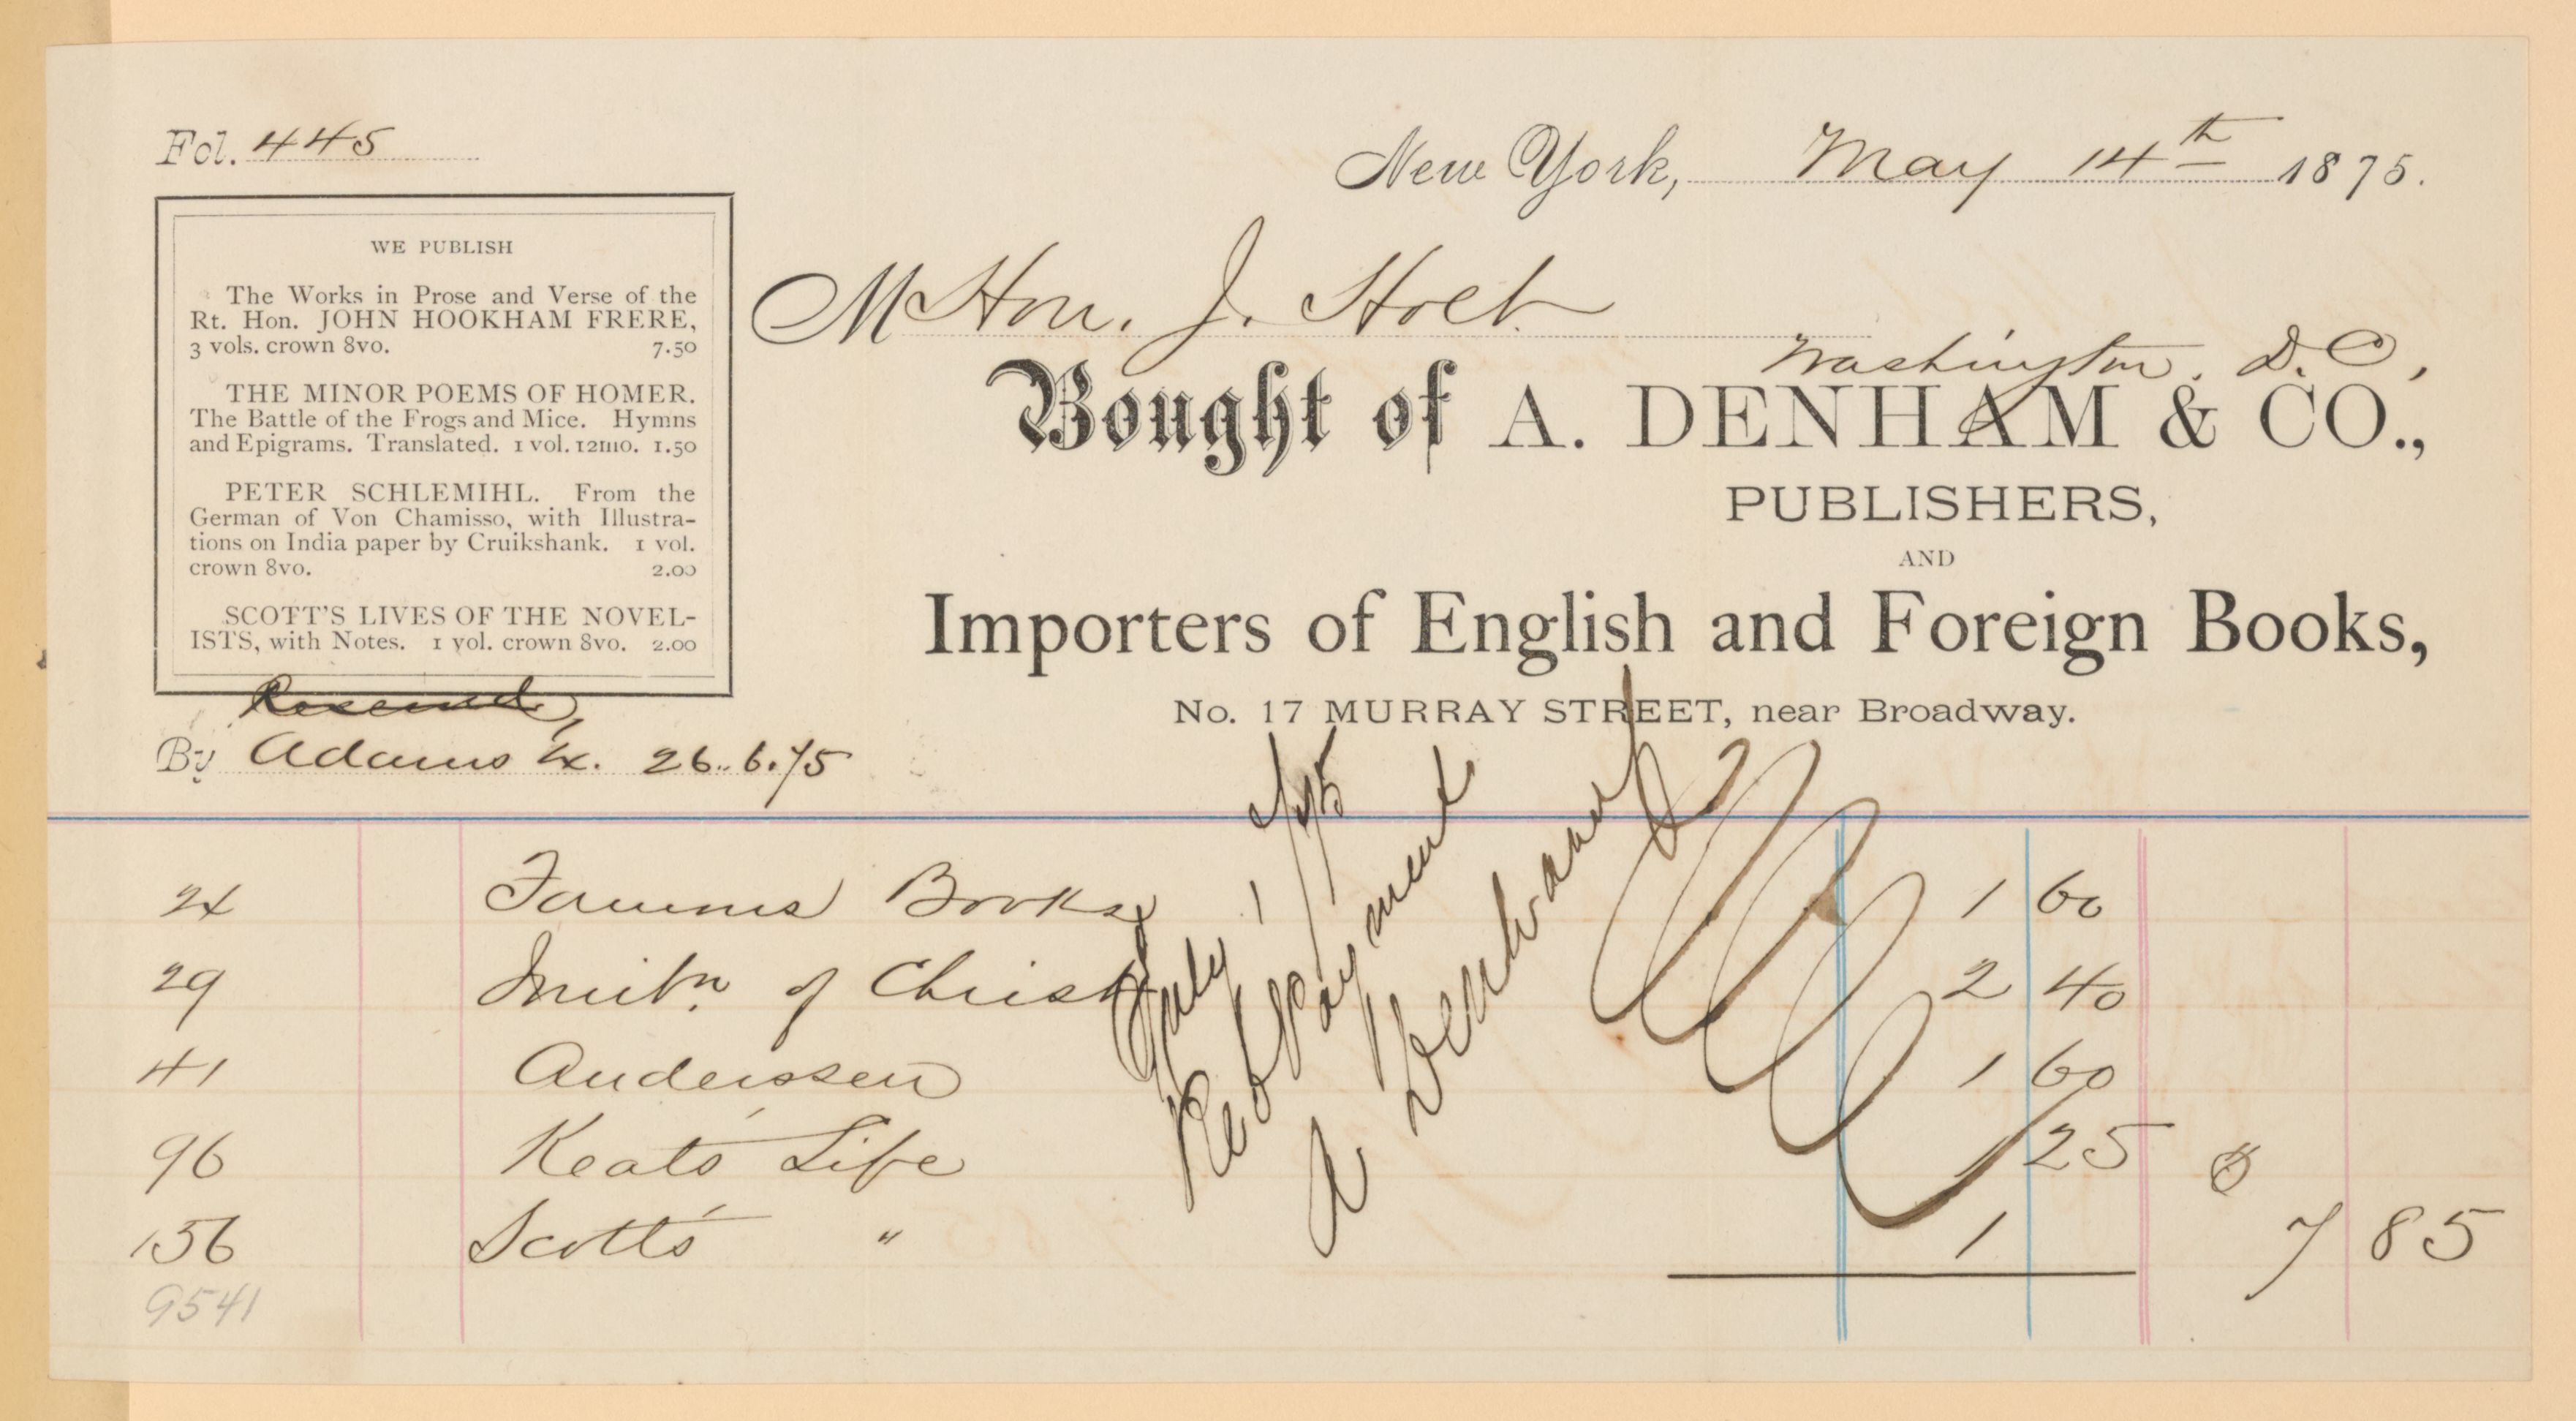 Fol. 445
New York, May 14th 1875.
WE PUBLISH
The Works in Prose and Verse of the
Rt. Hon. JOHN HOOKHAM FRERE,
3 vols. crown 8vo. 7.50
THE MINOR POEMS OF HOMER.
The Battle of the Frogs and Mice. Hymns
and Epigrams. Translated. 1 vol. 12mo. 1.50
PETER SCHLEMIHL. From the
German of Von Chamisso, with Illustra-
tions on India paper by Cruikshank. 1 vol.
crown 8vo. 2.00
SCOTT'S LIVES OF THE NOVEL-
ISTS, with Notes. 1 vol. crown 8vo. 2.00
M Hon. J. Holt
Washington. D.C,
Bought of A. DENHAM & CO.,
PUBLISHERS,
AND
Importers of English and Foreign Books,
No. 17 MURRAY STREET, near Broadway.
By Adams Ex. 26.6.75
24 Famous Books 1 60
29 Imitn. of Christ 2 40
41 Anderssen 1 60
96 Keats' Life 1 25
156 Scott's " 1
$ 7 85
9541
July 1 /75
Recd payment
A Denham &